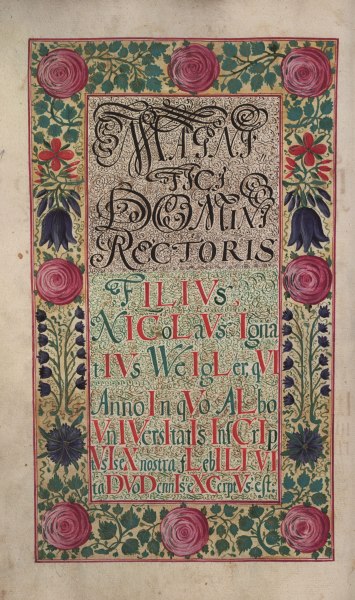 MAGNI
FICI
DOMINI
RECTORIS
FILIVs,
NICoLaVs Igna
tIVs WeIgLer, qVI
Anno In qVo ALbo
VnIVersItatIs InsCrIp
tVs Is eX nostra fLebILI VI
ta DVoDennIs eXCerptVs est.